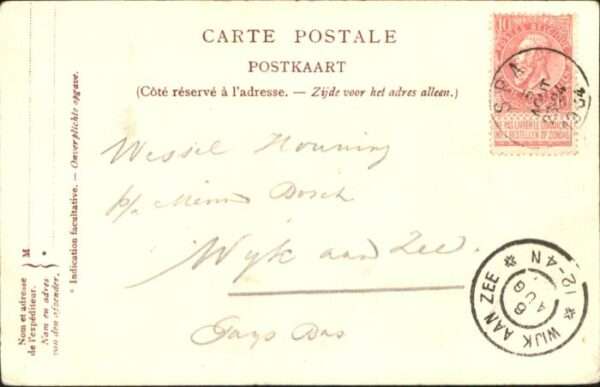 CARTE POSTALE
POSTKAART
(Côté réservé à l'adresse. — Zijde voor het adres alleen.)
10
SPA
AOUT
1904
NE PAS LIVRER LE DIMANCHE
NIET BESTELLEN OP ZONDAG
Wessel
p/a Dosch
Wijk aan Zee.
Pays Bas
* Indication facultative. — Onverplichte opgave.
M
*
Nom et adresse
de l'expéditeur.
Naam en adres
van den afzender.
WIJK AAN ZEE
12-4N
6
AUG